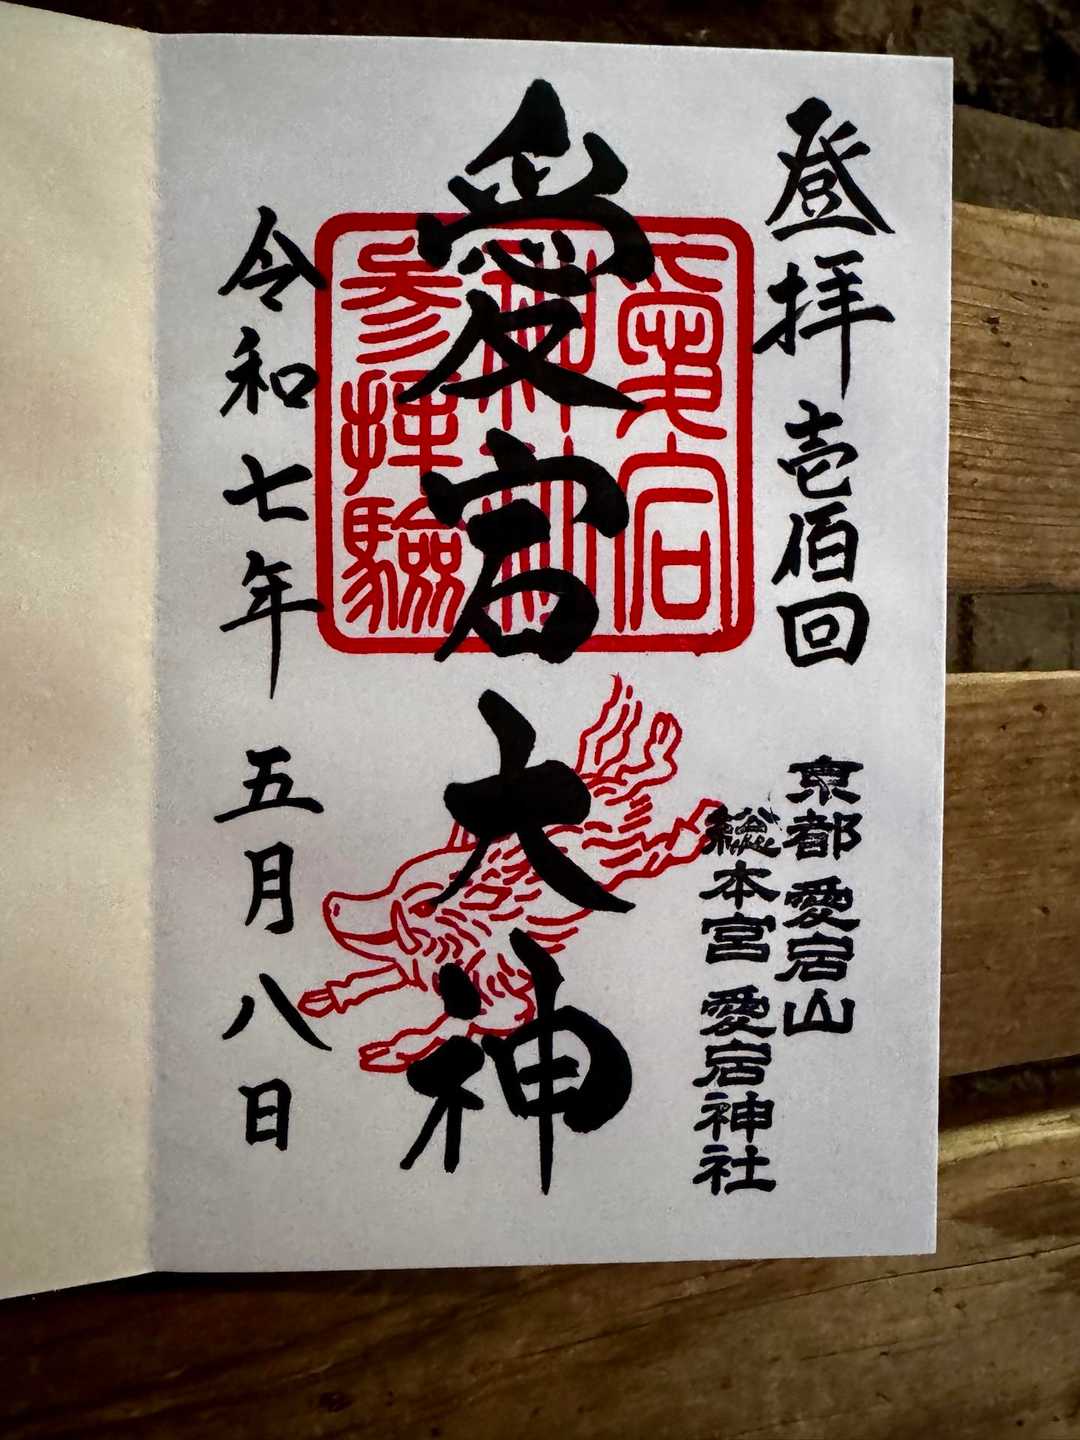 登拝壱佰回
京都愛宕山
総本宮愛宕神社
愛宕大神
愛宕
神社
参拝験
令和七年五月八日